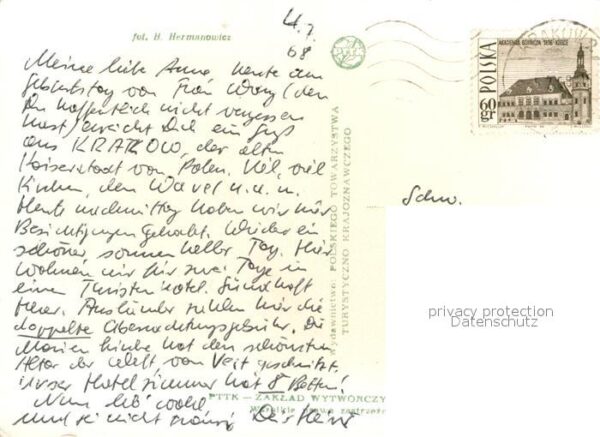 4.7.
68
fot. H. Hermanowicz
Meine liebe Anna heute am
Geburtstag von Frau Wang (den
Du hoffentlich nicht vergessen
hast) erreicht Dich ein Gruß
aus KRAKOW, der alten
Kaiserstadt von Polen. Viel, viel
Kirchen, den Wavel u.a.m.
Heute nachmittag haben wir hier
Besichtigungen gehabt. Wieder ein
schöner, sonnen heller Tag. Hier
wohnen wir für zwei Tage in
einem Touristenhotel. Sündhaft
teuer. Ausländer zahlen hier die
doppelte Übernachtungsgebühr. Die
Marienkirche hat den schönsten
Altar der Welt von Veit geschnitzt.
Unser Hotelzimmer hat 8 Betten!
Nun leb' wohl
und sei nicht
Wydawnictwo: POLSKIEGO TOWARZYSTWA
TURYSTYCZNO KRAJOZNAWCZEGO
PTTK - ZAKŁAD WYTWÓRCZY
Wszelkie prawa zastrzeż
POLSKA
60 gr
Schw.
privacy protection
Datenschutz